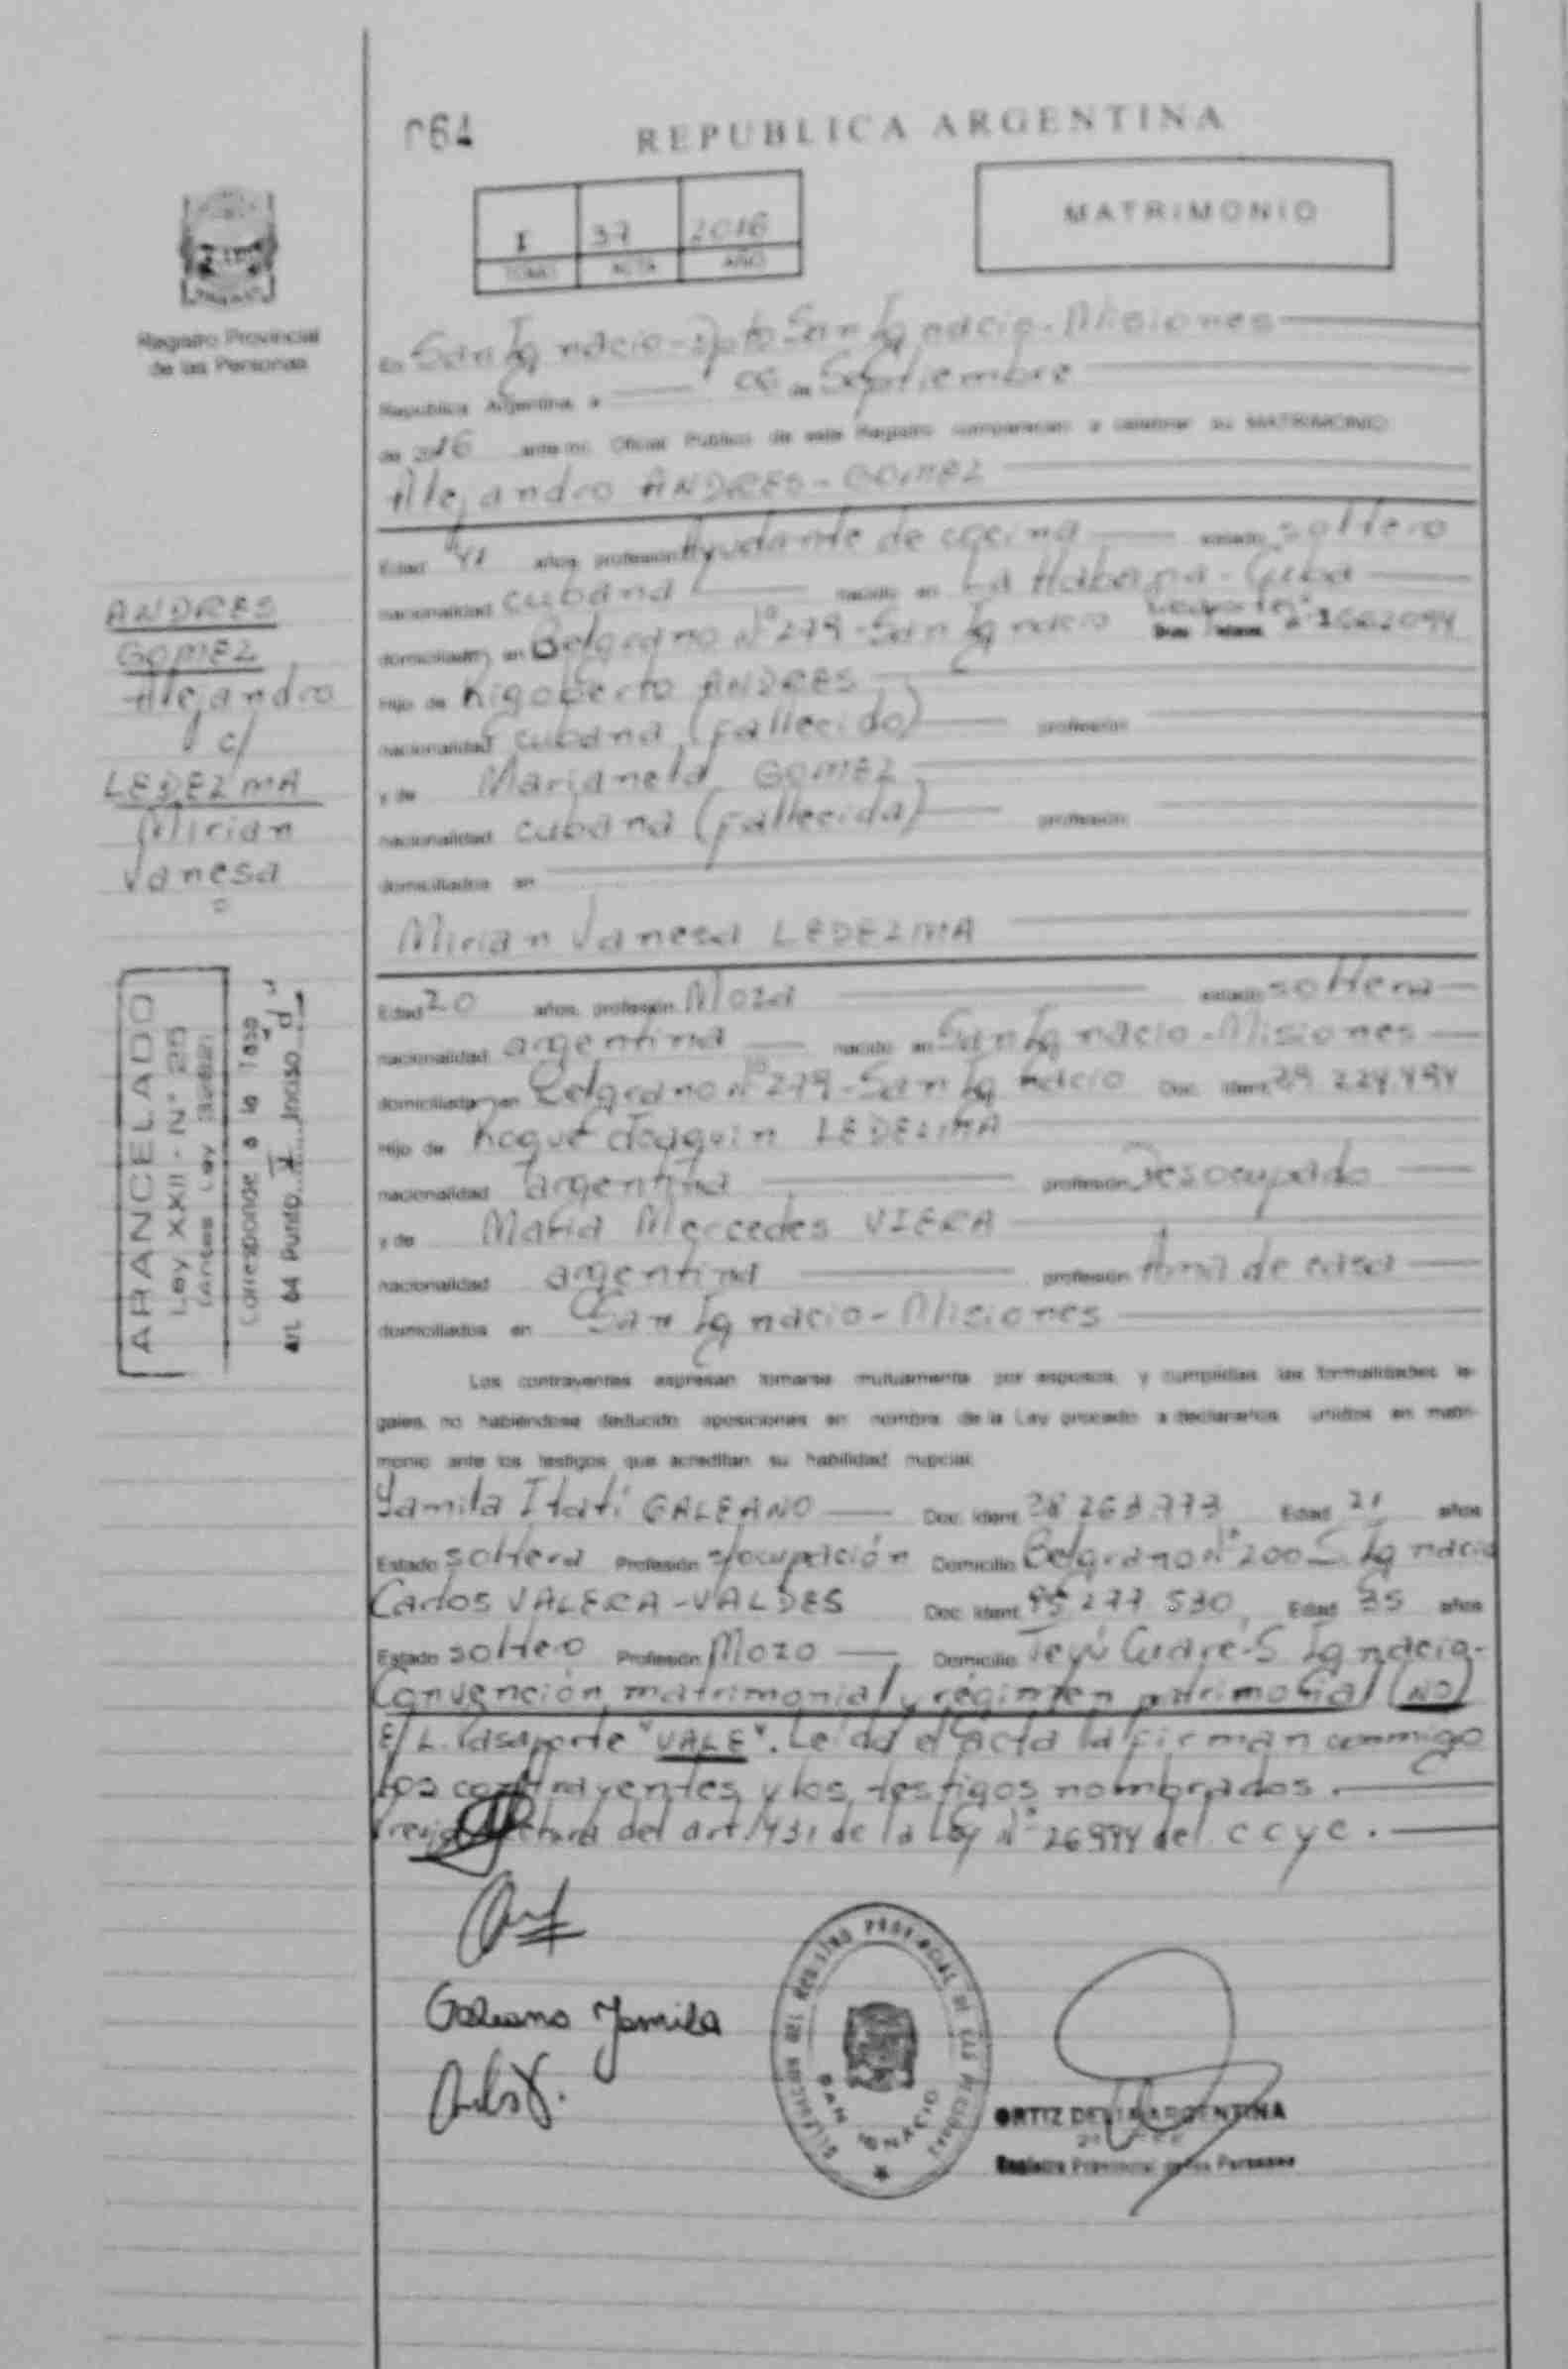 064
REPUBLICA ARGENTINA
I 37 2016
TOMO ACTA AÑO
MATRIMONIO
Registro Provincial
de las Personas
En San Ignacio - Dpto San Ignacio - Misiones
República Argentina, a 06 de Septiembre
de 2016 ante mí, Oficial Público de este Registro comparecen a celebrar su MATRIMONIO
Alejandro ANDRES - GOMEZ
Edad 41 años, profesión Ayudante de cocina estado soltero
nacionalidad cubana nacido en La Habana - Cuba
domiciliado en Belgrano N° 279 - San Ignacio
Hijo de Rigoberto ANDRES
nacionalidad cubana (fallecido) profesión
y de Marianela GOMEZ
nacionalidad cubana (fallecida) profesión
domiciliados en
Mirian Vanesa LEDEZMA
Edad 20 años, profesión Moza estado soltera
nacionalidad argentina nacido en San Ignacio - Misiones
domiciliada en Belgrano N° 279 - San Ignacio Doc. Ident. 39.224.494
Hijo de Roque Joaquin LEDEZMA
nacionalidad argentina profesión Desocupado
y de Maria Mercedes VIERA
nacionalidad argentina profesión Ama de casa
domiciliados en San Ignacio - Misiones
Los contrayentes expresan tomarse mutuamente por esposos, y cumplidas las formalidades le-
gales, no habiéndose deducido oposiciones en nombre de la Ley procedo a declararlos unidos en matri-
monio ante los testigos que acreditan su habilidad nupcial.
Yamila Itatí GALEANO Doc. Ident. 38 263.773 Edad 21 años
Estado soltera Profesión s/ocupación Domicilio Belgrano N° 200 S. Ignacio
Carlos VALERA - VALDES Doc. Ident. 95 277 530, Edad 35 años
Estado soltero Profesión Mozo Domicilio Teyú Cuaré - S Ignacio -
Convención matrimonial y régimen patrimonial (NO)
E/L. Pasaporte "VALE". Leida el acta la firman conmigo
los contrayentes y los testigos nombrados.
del art. 431 de la Ley N° 26994 del ccyc.
ANDRES
GOMEZ
Alejandro
c/
LEDEZMA
Mirian
Vanesa
ARANCELADO
Ley XXII - N° 25
(Antes Ley
Corresponde a la Tasa
Art. 64 Punto I Inciso d
Galeano Yamila
REGISTRO PROVINCIAL DE LAS PERSONAS
SAN IGNACIO
ORTIZ DELIA ARGENTINA
Registro Provincial de las Personas